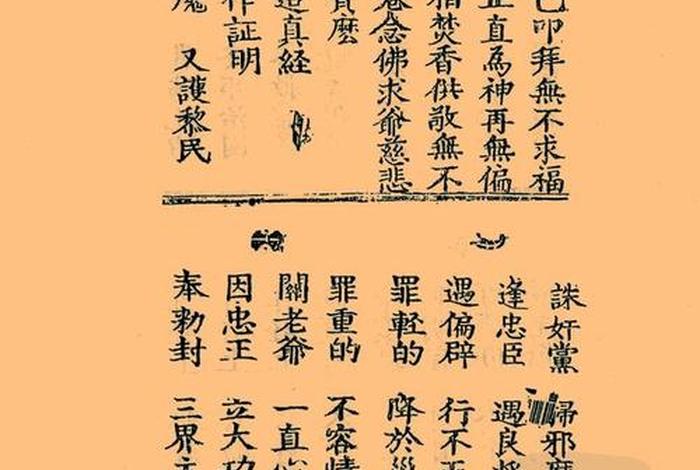 叩拜無不求福
正直為神再無偏
焚香供敬無不
念佛求爺慈悲
麽
真経
作証明
魔 又護黎民
誅奸黨 掃邪魔
逢忠臣 遇良
遇偏辟 行不正
罪軽的 降於
罪重的 不容情
關老爺 一直心
因忠正 立大功
奉勑封 三界